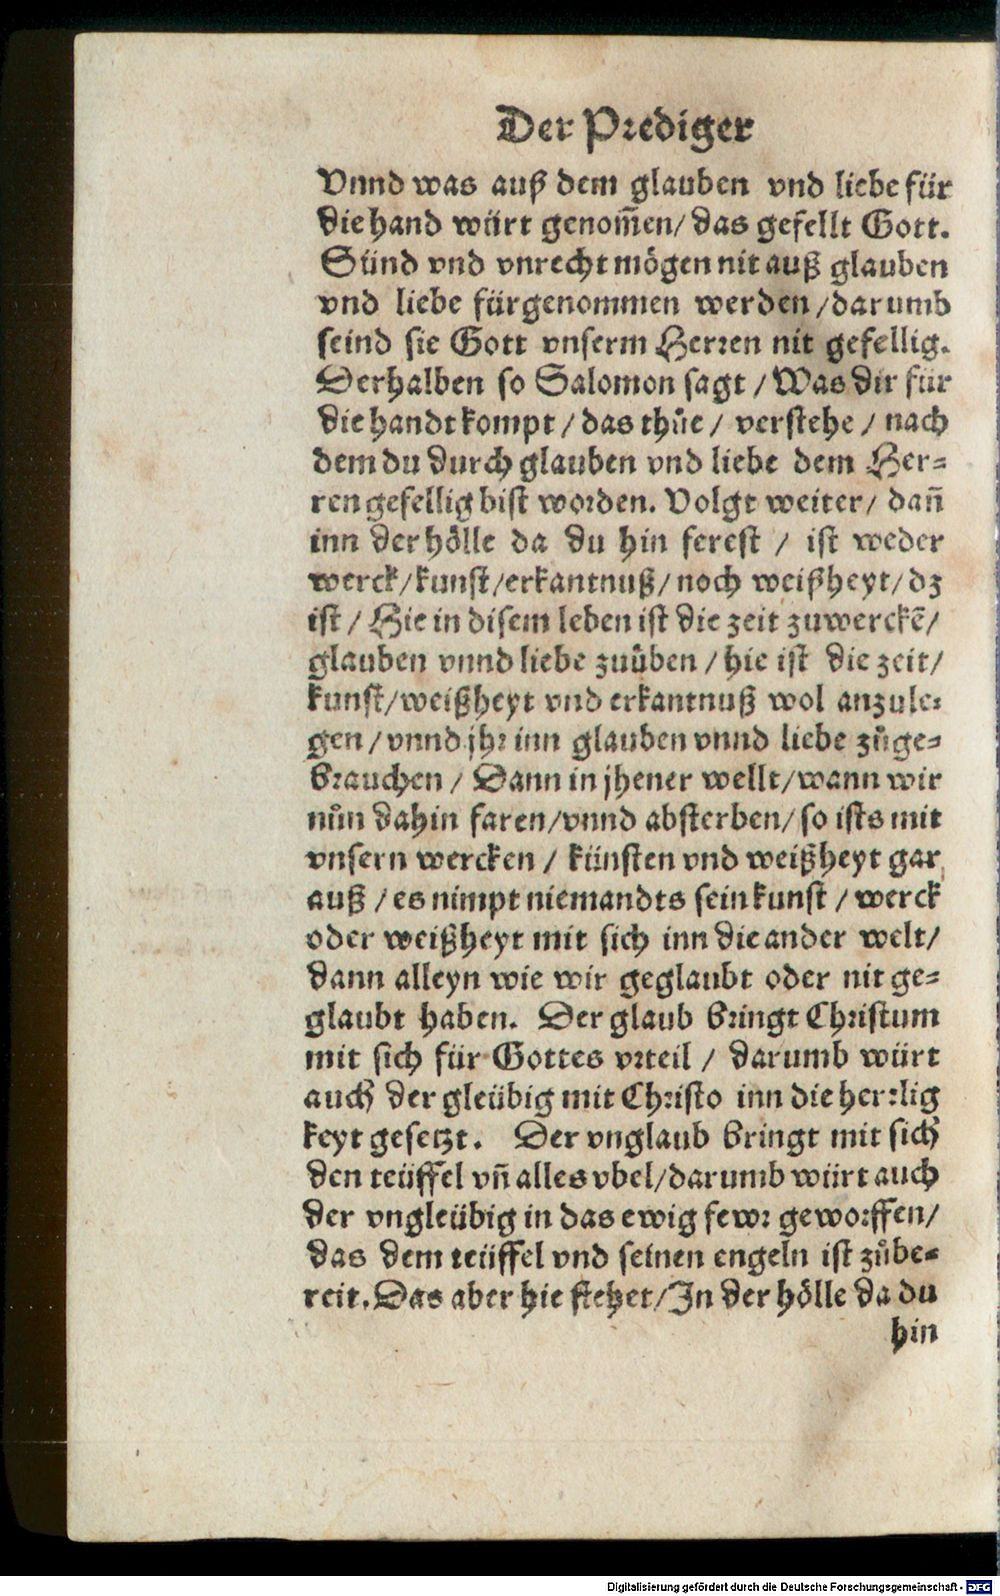 Der Prediger
Vnnd was auß dem glauben vnd liebe für
die hand würt genom̃en/ das gefellt Gott.
Sünd vnd vnrecht mögen nit auß glauben
vnd liebe fürgenommen werden /darumb
seind sie Gott vnserm Herren nit gefellig.
Derhalben so Salomon sagt / Was dir für
die handt kompt / das thůe / verstehe / nach
dem du durch glauben vnd liebe dem Her-
ren gefellig bist worden. Volgt weiter/ dañ
inn der hölle da du hin ferest / ist weder
werck/kunst/erkantnuß/ noch weißheyt/ dz
ist / Hie in disem leben ist die zeit zuwerckẽ/
glauben vnnd liebe zuüben / hie ist die zeit/
kunst/weißheyt vnd erkantnuß wol anzule-
gen / vnnd jhr inn glauben vnnd liebe zůge-
brauchen / Dann in jhener wellt/wann wir
nůn dahin faren/vnnd absterben/ so ists mit
vnsern wercken / künsten vnd weißheyt gar
auß / es nimpt niemandts sein kunst / werck
oder weißheyt mit sich inn die ander welt/
dann alleyn wie wir geglaubt oder nit ge-
glaubt haben. Der glaub bringt Christum
mit sich für Gottes vrteil / darumb würt
auch der gleübig mit Christo inn die herrlig
keyt gesetzt. Der vnglaub bringt mit sich
den teüffel vñ alles vbel/darumb würt auch
der vngleübig in das ewig fewr geworffen/
das dem teüffel vnd seinen engeln ist zůbe-
reit. Das aber hie stehet/In der hölle da du
hin
Digitalisierung gefördert durch die Deutsche Forschungsgemeinschaft - DFG